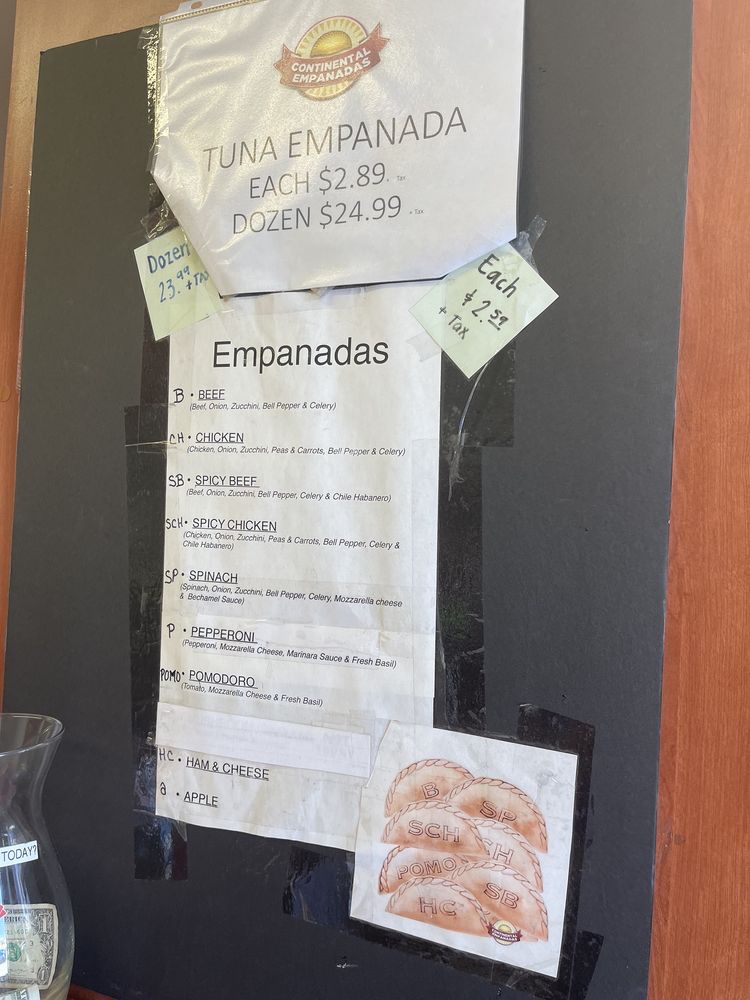 CONTINENTAL
EMPANADAS
TUNA EMPANADA
EACH $2.89 + Tax
DOZEN $24.99 + Tax
Dozen
23.99 + Tax
Each
$2.59
+ Tax
Empanadas
B • BEEF
(Beef, Onion, Zucchini, Bell Pepper & Celery)
CH • CHICKEN
(Chicken, Onion, Zucchini, Peas & Carrots, Bell Pepper & Celery)
SB • SPICY BEEF
(Beef, Onion, Zucchini, Bell Pepper, Celery & Chile Habanero)
SCH • SPICY CHICKEN
(Chicken, Onion, Zucchini, Peas & Carrots, Bell Pepper, Celery &
Chile Habanero)
SP • SPINACH
(Spinach, Onion, Zucchini, Bell Pepper, Celery, Mozzarella cheese
& Bechamel Sauce)
P • PEPPERONI
(Pepperoni, Mozzarella Cheese, Marinara Sauce & Fresh Basil)
POMO • POMODORO
(Tomato, Mozzarella Cheese & Fresh Basil)
HC • HAM & CHEESE
a • APPLE
B
SP
SCH
CH
POMO
SB
HC
CONTINENTAL
EMPANADAS
TODAY?
1